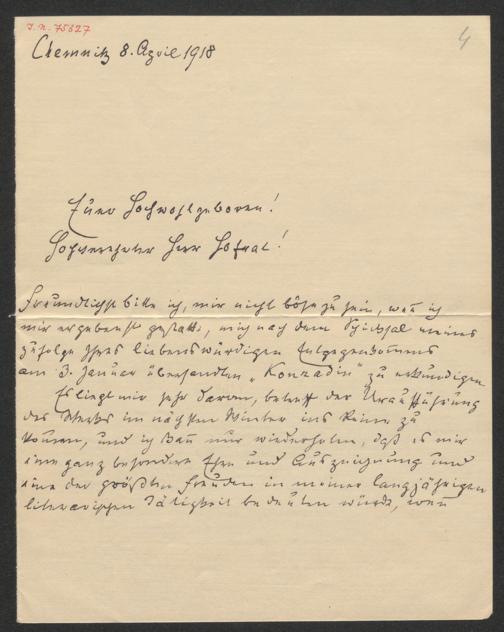 J.N. 75627
4
Chemnitz 8. April 1918
Euer Hochwohlgeboren!
Hochverehrter Herr Hofrat!
Freundlichst bitte ich, mir nicht böse zu sein, wenn ich
mir ergebenst gestatte, mich nach dem Schicksal meines
zufolge Ihres liebenswürdigen Entgegenkommens
am 3. Januar übersandten „Konradin" zu erkundigen.
Es liegt mir sehr daran, betreff der Uraufführung
des Werkes im nächsten Winter ins Reine zu
kommen, und ich kann nur wiederholen, daß es mir
eine ganz besondere Ehre und Auszeichnung und
eine der größten Freuden in meiner langjährigen
literarischen Tätigkeit bedeuten würde, wenn